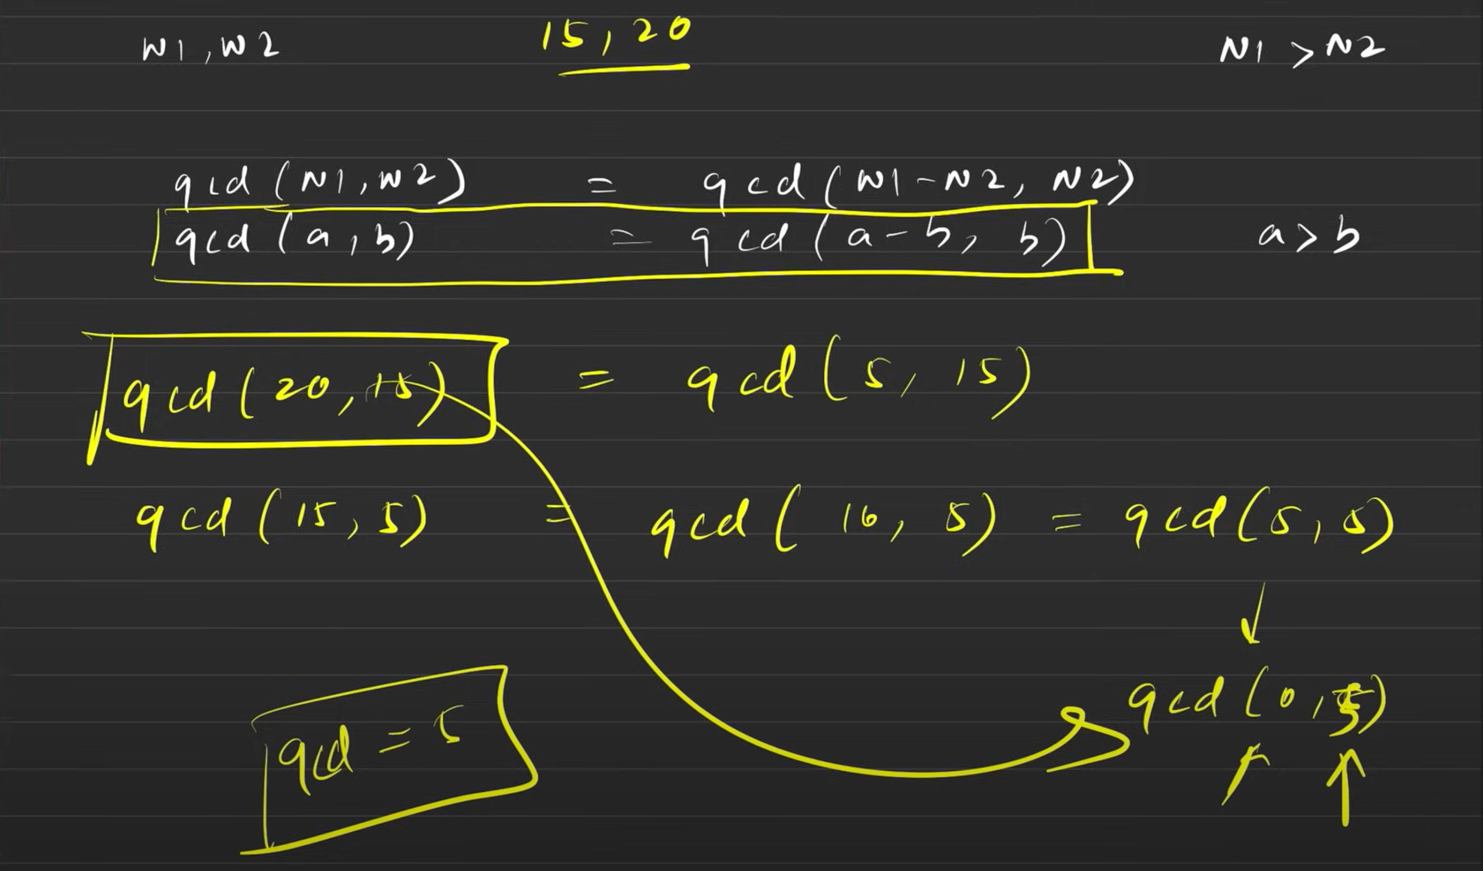 N1, N2 15, 20 N1 > N2
gcd (N1, N2) = gcd (N1-N2, N2)
gcd (a, b) = gcd (a-b, b) a > b
gcd (20, 15) = gcd (5, 15)
gcd (15, 5) = gcd (10, 5) = gcd (5, 5)
gcd (0, 5)
gcd = 5